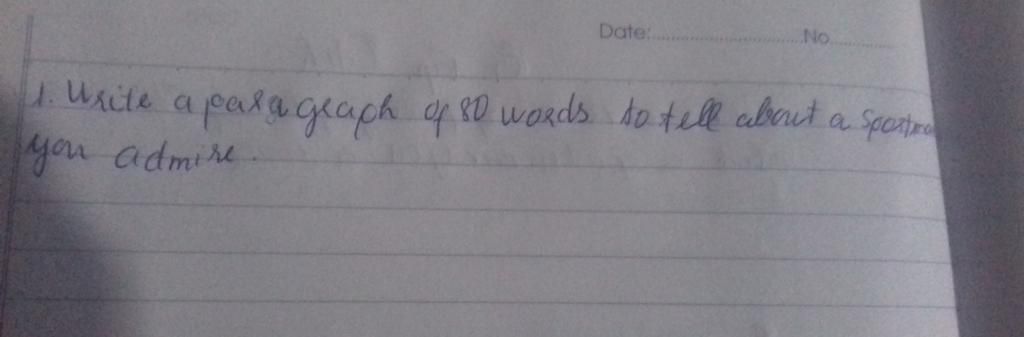 Date:............................No..............
1. Write a paragraph of 80 words to tell about a Sportman
you admire.